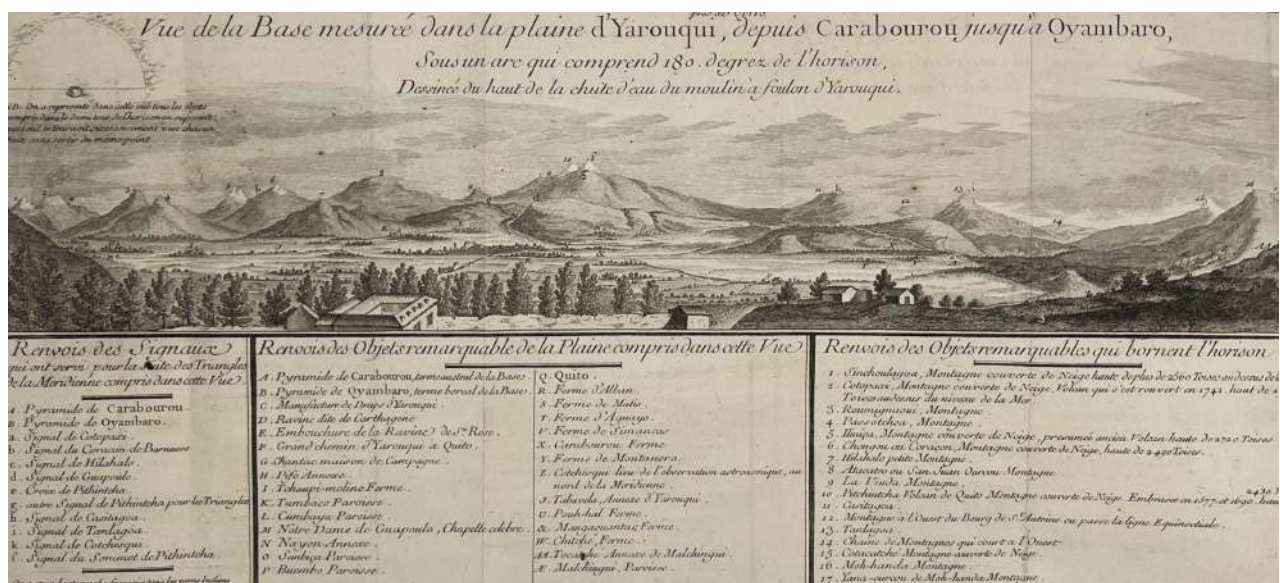 Vue de la Base mesurée dans la plaine d'Yarouqui, depuis Carabourou jusqu'a Oyambaro,
Sous un arc qui comprend 180. degrez de l'horison,
Dessinée du haut de la chute d'eau du moulin à foulon d'Yarouqui.
On a représenté dans cette vue tous les objets
Renvois des Signaux
qui ont servi pour la suite des Triangles
de la Meridienne compris dans cette Vue
A. Pyramide de Carabourou.
B. Pyramide de Oyambaro.
a. Signal de Cotopaxi
b. Signal du Coraçon de Barnuevo
c. Signal de Hilahalo
d. Signal de Guapoulo
e. Croix de Pithintcha
g. autre Signal de Pithintcha pour les Triangles
h. Signal de Cantagoa
i. Signal de Tanlagoa
k. Signal de Cotchesqui
f. Signal du Sommet de Pithintcha
Renvois des Objets remarquable de la Plaine compris dans cette Vue
A. Pyramide de Carabourou, terme austral de la Base.
B. Pyramide de Oyambaro, terme boreal de la Base.
C. Manufacture de Draps d'Yarouqui
D. Ravine dite de Carthagene
E. Embouchure de la Ravine de Ste Rose.
F. Grand chemin d'Yarouqui à Quito.
G. Chantac maison de Campagne.
H. Pifo Annexe.
I. Tchaupi-molino Ferme.
K. Tumbaco Paroisse.
L. Cumbaya Paroisse.
M. Nôtre Dame de Guapoulo, Chapelle celebre.
N. Nayon Annexe.
O. Sanbiça Paroisse.
P. Buembo Paroisse.
Q. Quito.
R. Ferme d'Alban
S. Ferme de Matis
T. Ferme d'Aguayo
V. Ferme de Simancas
X. Carabourou Ferme.
Y. Ferme de Montanero.
Z. Cotchesqui lieu de l'observation astronomique, au
nord de la Meridienne.
J. Tabavela, Annexe d'Yarouqui
U. Pouhhal Ferme.
&. Mangaouantac Ferme.
W. Chitche, Ferme.
AA. Tocatche Annexe de Malchingui.
Æ. Malchingui, Paroisse.
Renvois des Objets remarquables qui bornent l'horison
1. Sinchoulagoa, Montagne couverte de Neige haute de plus de 2560 Toises audessus de la
2. Cotopaxi, Montagne couverte de Neige, Volcan qui s'est rouvert en 1742. haut de
Toises audessus du niveau de la Mer.
3. Rouminaoui, Montagne.
4. Passotchoa, Montagne.
5. Iliniça, Montagne couverte de Neige, presumée ancien Volcan haute de 2720 Toises
6. Chongon ou Coraçon, Montagne couverte de Neige, haute de 2490 Toises.
7. Hilahalo petite Montagne.
8. Atacatzo ou San Juan Ourcou Montagne.
9. La Viuda Montagne.
10. Pitchintcha Volcan de Quito Montagne couverte de Neige. Embrasée en 1577. et 1690. haute 2430
11. Cantagoa.
12. Montagne à l'Ouest du Bourg de St Antoine ou passe la ligne Equinoctiale.
13. Tanlagoa.
14. Chaine de Montagnes qui court a l'Ouest
15. Cotacatche Montagne couverte de Neige.
16. Moh-handa Montagne.
17. Yana-ourcou de Moh-handa Montagne.